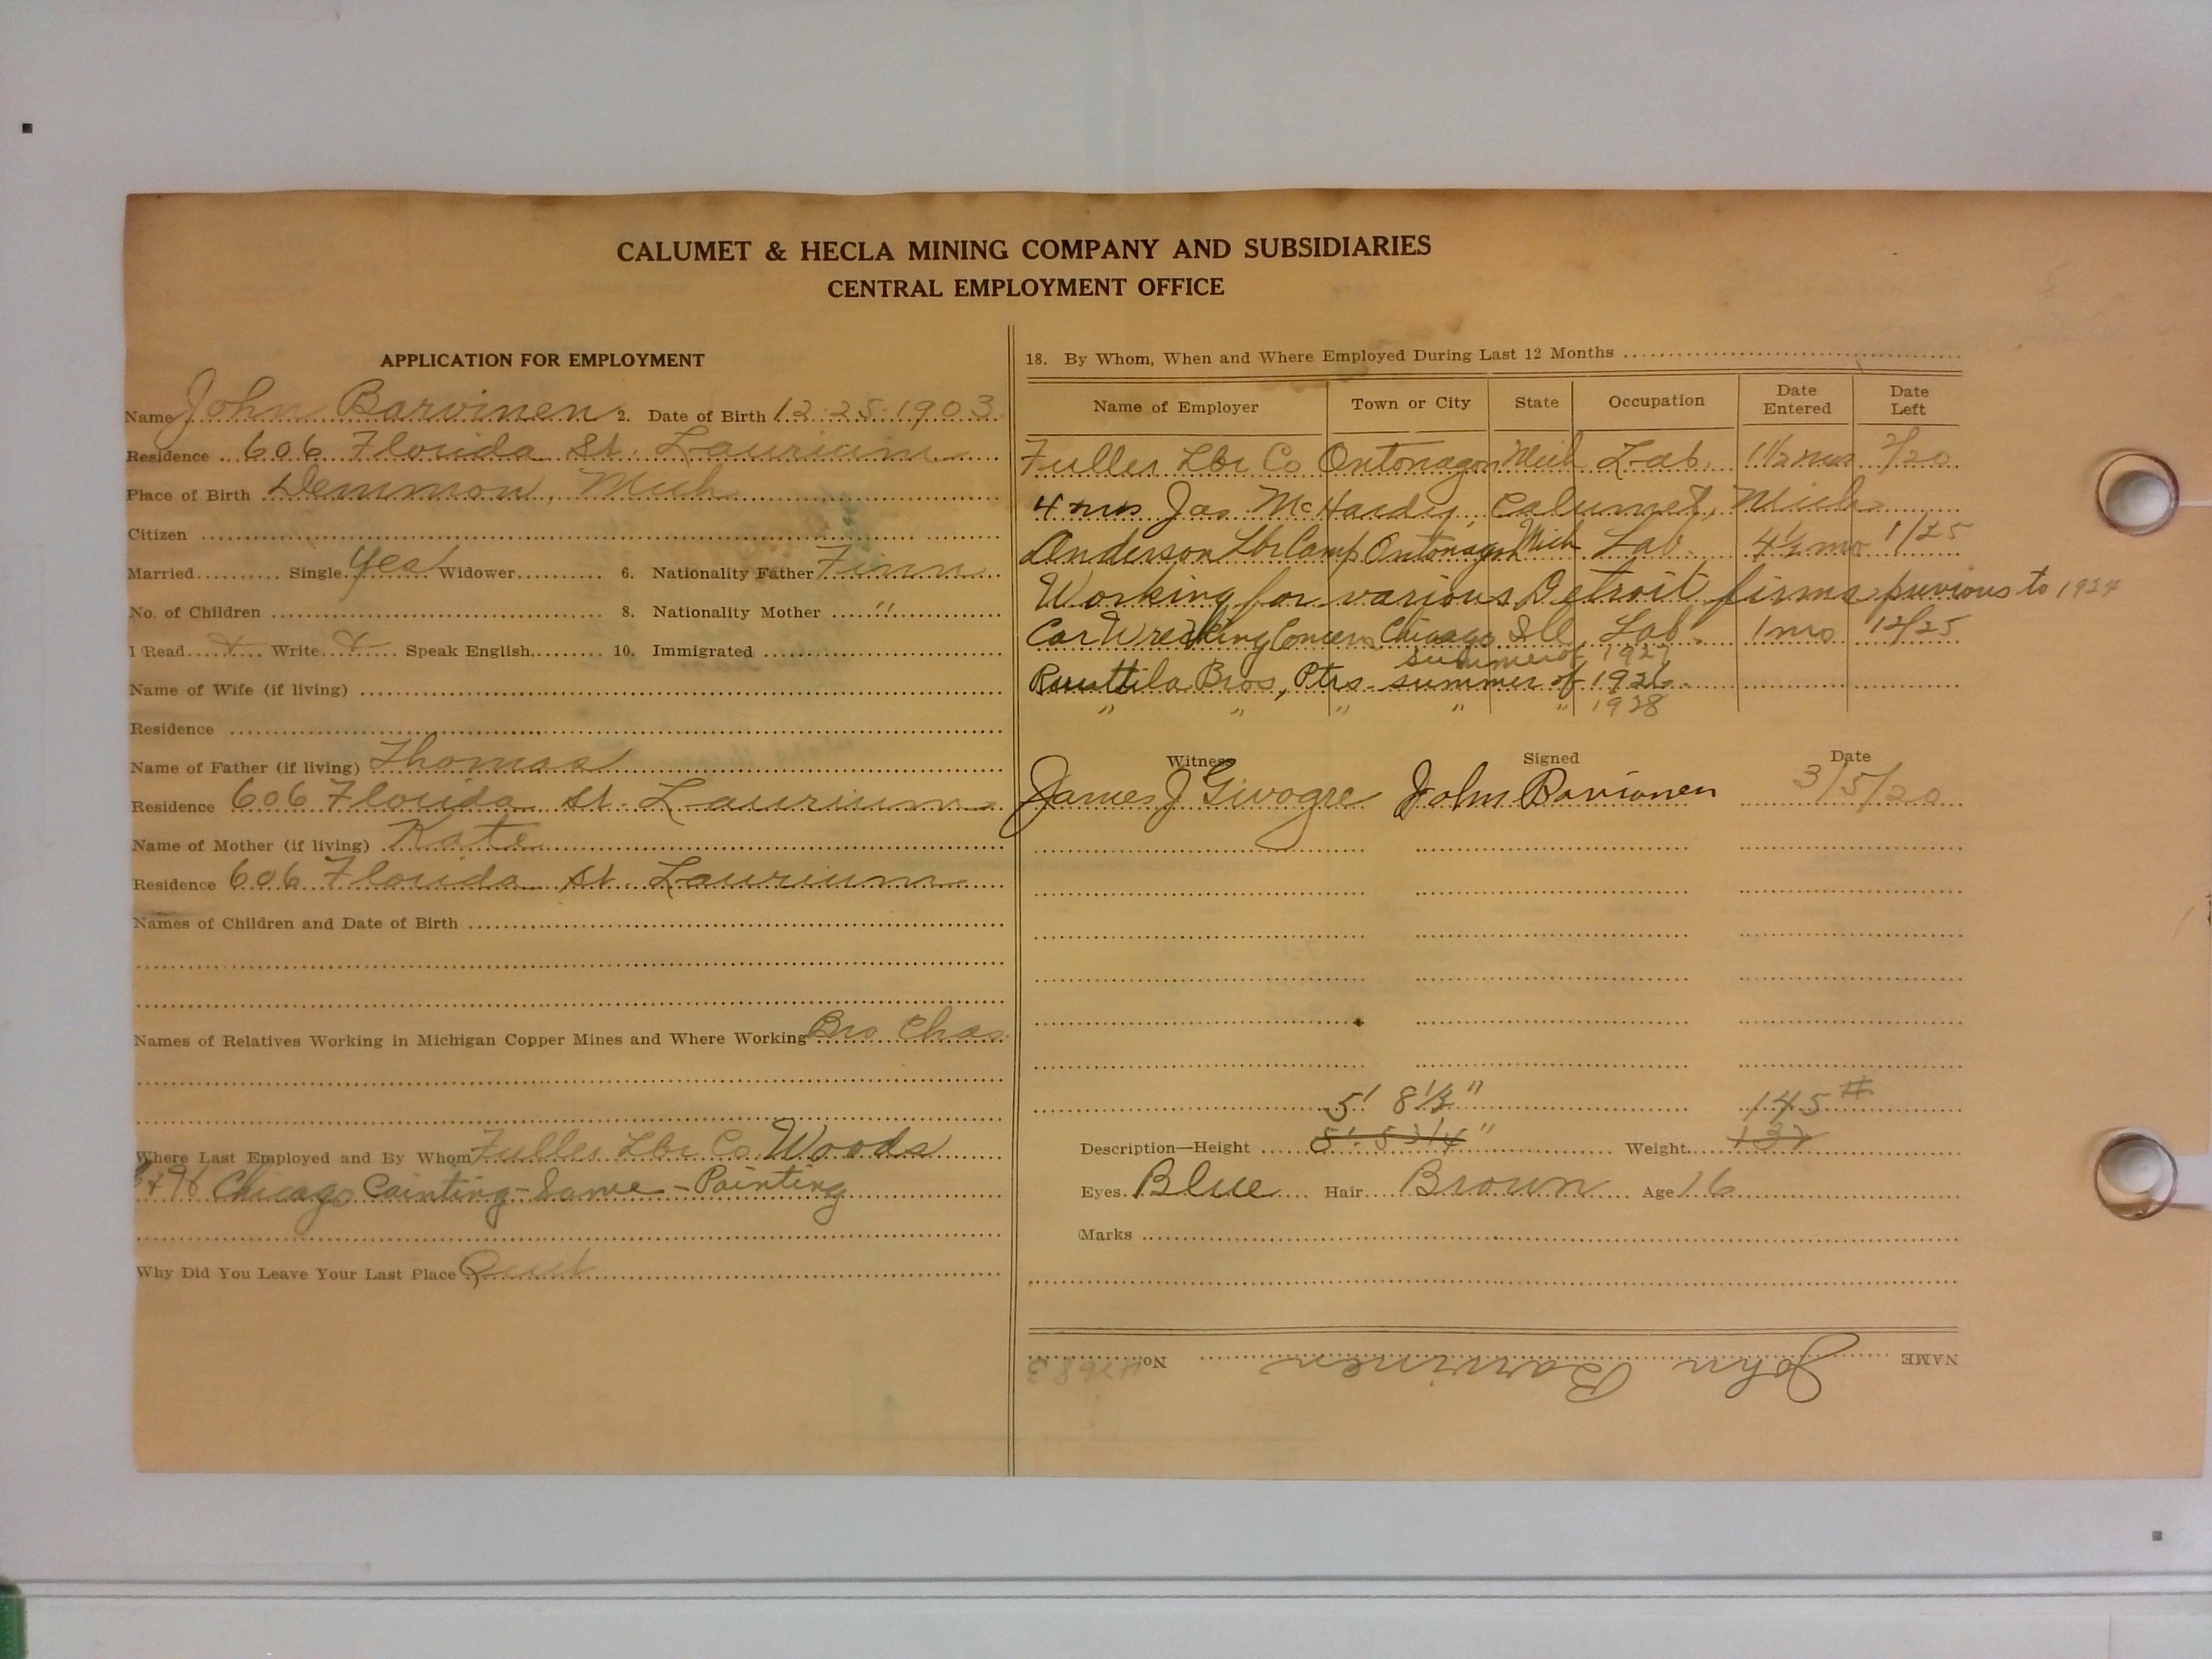 CALUMET & HECLA MINING COMPANY AND SUBSIDIARIES
CENTRAL EMPLOYMENT OFFICE
APPLICATION FOR EMPLOYMENT
Name John Barvinen 2. Date of Birth 12-25-1903
Residence 606 Florida St. Laurium
Place of Birth Demmon, Mich
Citizen
Married Single Yes Widower 6. Nationality Father Finn
No. of Children 8. Nationality Mother "
I Read x Write x Speak English 10. Immigrated
Name of Wife (if living)
Residence
Name of Father (if living) Thomas
Residence 606 Florida St. Laurium
Name of Mother (if living) Kate
Residence 606 Florida St. Laurium
Names of Children and Date of Birth
Names of Relatives Working in Michigan Copper Mines and Where Working Bro Chas
Where Last Employed and By Whom Fuller Lbr Co. Woods
Chicago Painting - Same - Painting
Why Did You Leave Your Last Place Quit
18. By Whom, When and Where Employed During Last 12 Months
Name of Employer Town or City State Occupation Date Entered Date Left
Fuller Lbr Co Ontonagon Mich Lab. 1½ mos 2/20
4 mos Jas McHardy, Calumet, Mich
Anderson Lbr Camp Ontonagon Mich Lab. 4½ mo 1/25
Working for various Detroit firms previous to 1924
Car Wrecking Concern Chicago Ill Lab. 1 mo 12/25
summer of 1927
Ruuttila Bros, Ptrs. summer of 1926
" " " " " 1928
Witness Signed Date
James J Givogre John Barvinen 3/5/20
5' 8½" 145#
Description—Height 5' 5 3/4" Weight 132
Eyes Blue Hair Brown Age 16
Marks
NAME John Barvinen No.